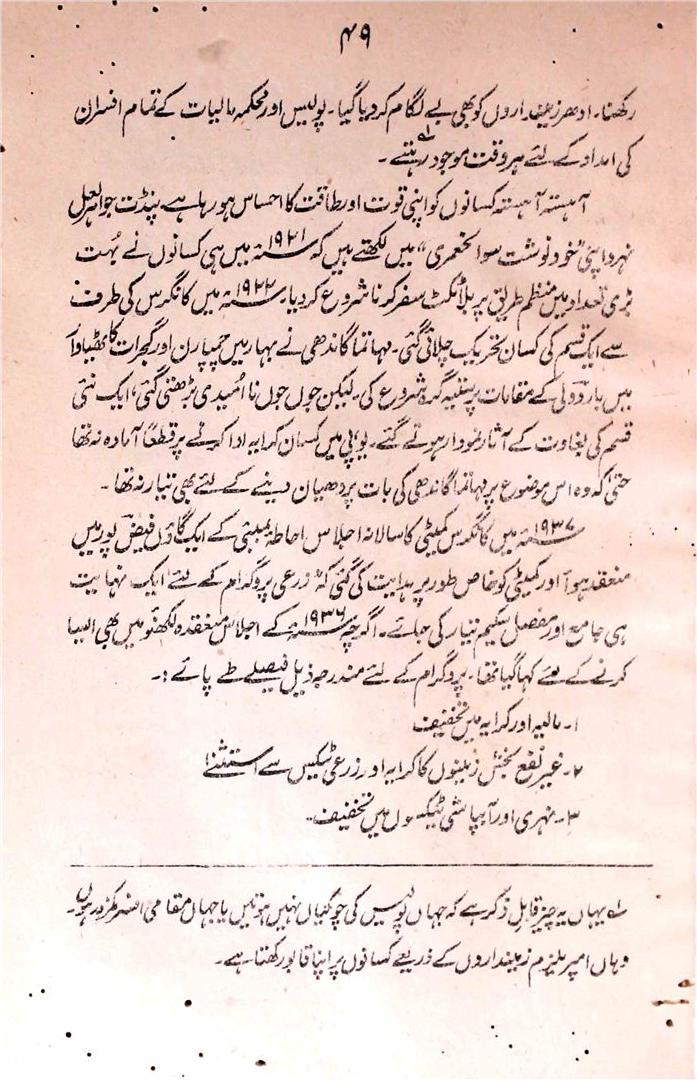 ۴۹
رکھنا۔ ادھر زمینداروں کو بھی بے لگام کر دیا گیا۔ پولیس اور محکمہ مالیات کے تمام افسران
کی امداد کے لئے ہر وقت موجود رہتے ؎۱۔
آہستہ آہستہ کسانوں کو اپنی قوت اور طاقت کا احساس ہو رہا ہے۔ پنڈت جواہر لعل
نہرو اپنی "خود نوشت سوانحعمری" میں لکھتے ہیں کہ ۱۹۲۱ء میں ہی کسانوں نے بہت
بڑی تعداد میں منظم طریق پر بلا ٹکٹ سفر کرنا شروع کر دیا۔ ۱۹۲۲ء میں کانگرس کی طرف
سے ایک قسم کی کسان تحریک چلائی گئی۔ مہاتما گاندھی نے بہار میں چمپارن اور گجرات کاٹھیاواڑ
میں باردولی کے مقامات پر ستیہ گرہ شروع کی۔ لیکن جوں جوں نا امیدی بڑھتی گئی، ایک نئی
قسم کی بغاوت کے آثار نمودار ہوتے گئے۔ یو پی میں کسان کرایہ ادا کرنے پر قطعاً آمادہ نہ تھا
حتیٰ کہ وہ اس موضوع پر مہاتما گاندھی کی بات پر دھیان دینے کے لئے بھی تیار نہ تھا۔
۱۹۳۷ء میں کانگرس کمیٹی کا سالانہ اجلاس احاطہ بمبئی کے ایک گاؤں فیض پور میں
منعقد ہوا اور کمیٹی کو خاص طور پر ہدایت کی گئی کہ زرعی پروگرام کے لئے ایک نہایت
ہی جامع اور مفصل سکیم تیار کی جائے۔ اگرچہ ۱۹۳۶ء کے اجلاس منعقدہ لکھنؤ میں بھی ایسا
کرنے کے لئے کہا گیا تھا۔ پروگرام کے لئے مندرجہ ذیل فیصلے طے پائے :۔
۱۔ مالیہ اور کرایہ میں تخفیف
۲۔ غیر نفع بخش زمینوں کا کرایہ اور زرعی ٹیکس سے استثنےٰ
۳۔ نہری اور آبپاشی ٹیکسوں میں تخفیف۔
؎۱ یہاں یہ چیز قابل ذکر ہے کہ جہاں پولیس کی چوکیاں نہیں ہوتیں یا جہاں مقامی افسر کمزور ہوں۔
وہاں امپریلزم زمینداروں کے ذریعے کسانوں پر اپنا قابو رکھتا ہے۔